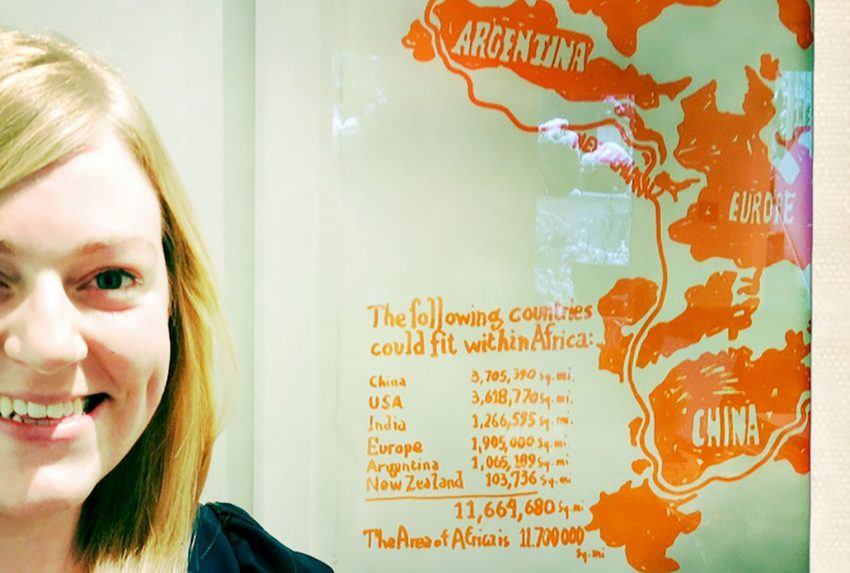 ARGENTINA
EUROPE
The following countries
could fit within Africa:
China 3,705,390 sq.mi.
USA 3,618,770 sq.mi.
India 1,266,595 sq.mi.
Europe 1,905,000 sq.mi.
Argentina 1,065,189 sq.mi
New Zealand 103,736 sq.mi
11,664,680 sq.mi
The Area of Africa is 11.700000
sq.mi
CHINA